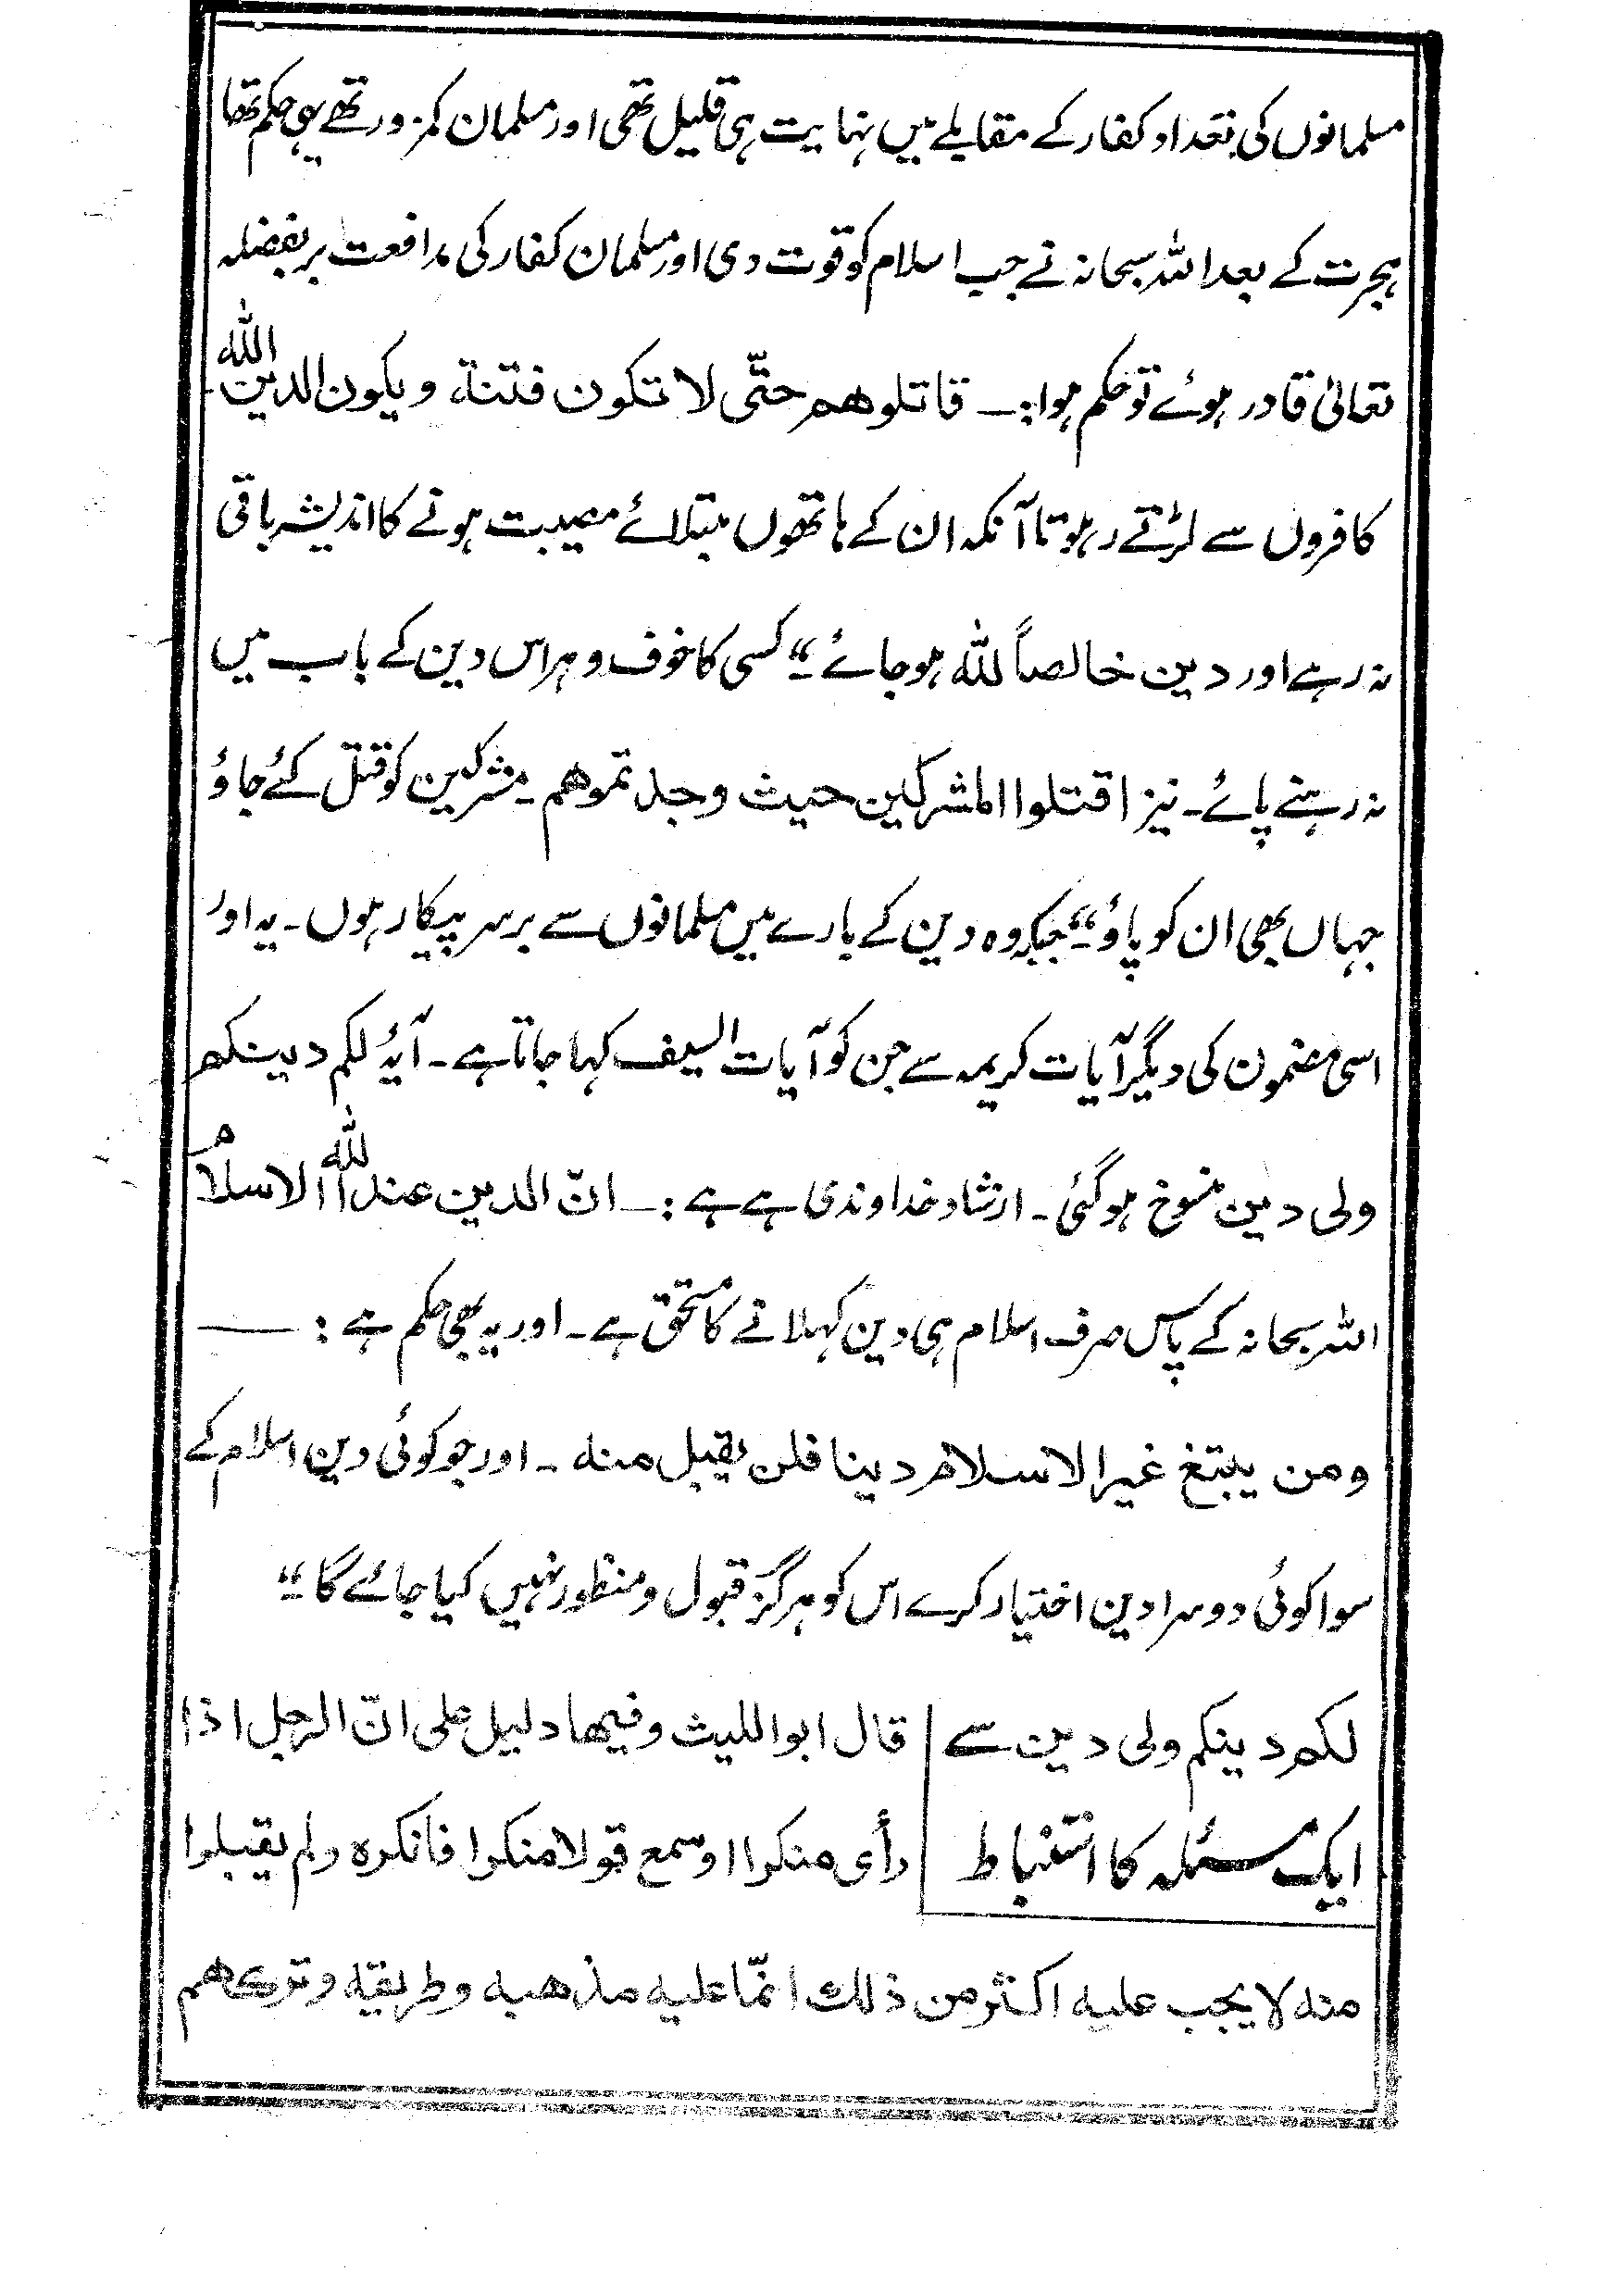 مسلمانوں کی تعداد کفار کے مقابلے میں نہایت ہی قلیل تھی اور مسلمان کمزور تھے یہی حکم تھا
ہجرت کے بعد اللہ سبحانہ نے جب اسلام کو قوت دی اور مسلمان کفار کی مدافعت پر بفضلہ
تعالیٰ قادر ہوئے تو حکم ہوا:۔ قاتلوهم حتّی لا تکون فتنة ویکون الدین للّٰہ
کافروں سے لڑتے رہو تا آنکہ ان کے ہاتھوں مبتلائے مصیبت ہونے کا اندیشہ باقی
نہ رہے اور دین خالصاً للہ ہو جائے۔“ کسی کا خوف و ہراس دین کے باب میں
نہ رہنے پائے۔ نیز اقتلوا المشرکین حیث وجدتموهم۔ مشرکین کو قتل کئے جاؤ
جہاں بھی ان کو پاؤ۔“ جبکہ وہ دین کے بارے میں مسلمانوں سے برسر پیکار ہوں۔ یہ اور
اسی مضمون کی دیگر آیات کریمہ سے جن کو آیات السیف کہا جاتا ہے۔ آیۂ لکم دینکم
ولی دین منسوخ ہو گئی۔ ارشاد خداوندی ہے ہے :۔ انّ الدین عند اللّٰہ الاسلامُ
اللہ سبحانہ کے پاس صرف اسلام ہی دین کہلانے کا مستحق ہے۔ اور یہ بھی حکم ہے :——
ومن یبتغ غیر الاسلام دینا فلن یقبل منه ۔ اور جو کوئی دین اسلام کے
سوا کوئی دوسرا دین اختیار کرے اس کو ہرگز قبول و منظور نہیں کیا جائے گا۔“
لکم دینکم ولی دین سے
ایک مسئلہ کا استنباط
قال ابو اللیث وفیھا دلیل علی انّ الرجل اذا
رأی منکرا او سمع قولا منکرا فانکرہ ولم یقبلوا
منه لا یجب علیه اکثر من ذلک انّما علیه مذهبه وطریقه وترکهم